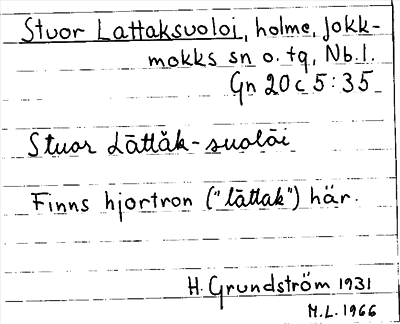 Stuor Lattaksuoloi, holme, Jokk-
mokks sn o. tg, Nb. l.
Gn 20 c 5:35
Stuor Lāttăk-suolāi
Finns hjortron ("lāttak") här.
H. Grundström 1931
M.L. 1966